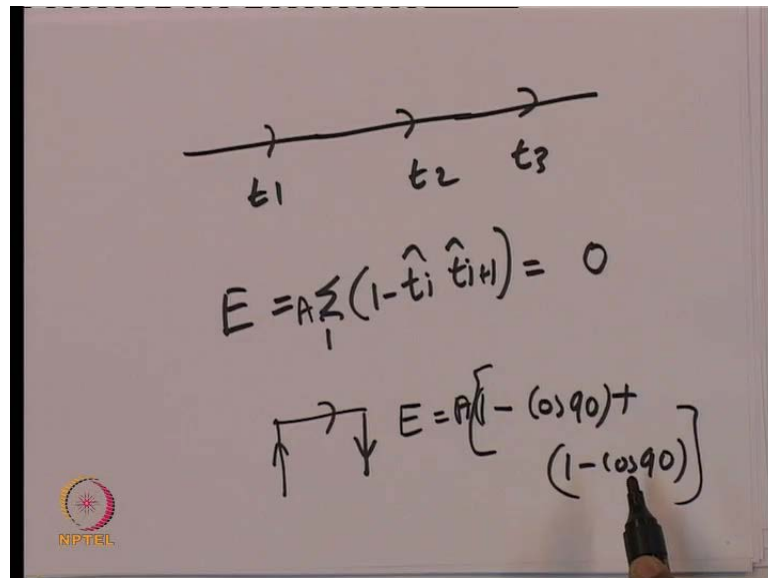 t1 t2 t3
E = A Σ 1 (1 - t̂i t̂i+1) = 0
E = A[(1 - cos90) +
(1 - cos90)]
NPTEL